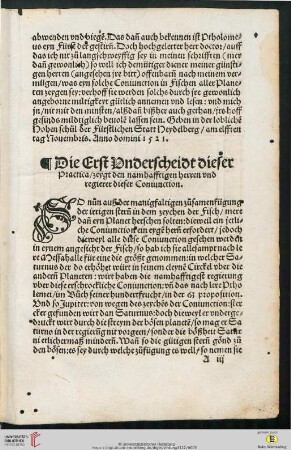 abweyen vnd biege. Das dañ auch bekennen ist Ptholome-
us eyn Fürst der gestirñ. Doch hochgelerter herr doctor/ auff
das ich nit zů lang schweyffig sey in meiner schrifften (wie
dañ gewonlich) so will ich demütiger diener meiner günsti-
gen herren (angesehen jre bitt) offenbarñ nach meinem ver-
mügen/ was eyn solichs Coniunction in Fischen aller Plane-
ten zeygen sey: verhoff sie werden solichs durch jre
angeborne miltigkeyt gütlich annemen vnd lesen: vnd mich
jn/ nit mit den minsten/ alßdañ bißher auch gethan/ jre hoff
gesinds miltigklich beuolé lassen sein. Geben in der lobliché
Hohen schůl der Fürstlichen Statt Heydelberg/ am eylfften
tag Nouembris. Anno domini 1 5 2 1.
¶ Die Erst Vnderscheidt dieser
Practica/ zeygt den namhafftigen herren vnd
regierer dieser Coniunction.
SO nůn auß der manigfaltigen zůsamenfügung
der jrrigen stern in dem zeychen der Fisch/ mere
dañ eyn Planet herschen solten: dieweil ein jetli-
che Coniunction ein ergē herrn erfordert/ jedoch
dieweyl alle diese Coniunction gesehen werden
in eynem angesicht der Fisch/ so hab ich sie allesampt nach le
re Messahalle für eine die gröst genommen: in welcher Sa-
turnus der do erhöhet würt in seinem cleyné Circkel vber die
anderñ Planeten: wirt haben die namhafftigest regierung
vber diese erschrockliche Coniunction: vnd das nach lere Ptho
lemei/ im Bůch seiner hundert frucht/ in der 63 proposition.
Vnd so Jupiter von wegen des zeychés der Coniunction ster
cker gefunden wirt dan Saturnus: doch dieweyl er vnderge-
druckt wirt durch die streym der bösen planeté/ so mag er Sa
turno in der regierůg nit vorgeen/ sonder die bößheit Saturni
etlichermaß mindern. Wañ so die gütigen sterñ gönd zů
den bösen: es sey durch welche zůfügung es well/ so nemen sie
A iij